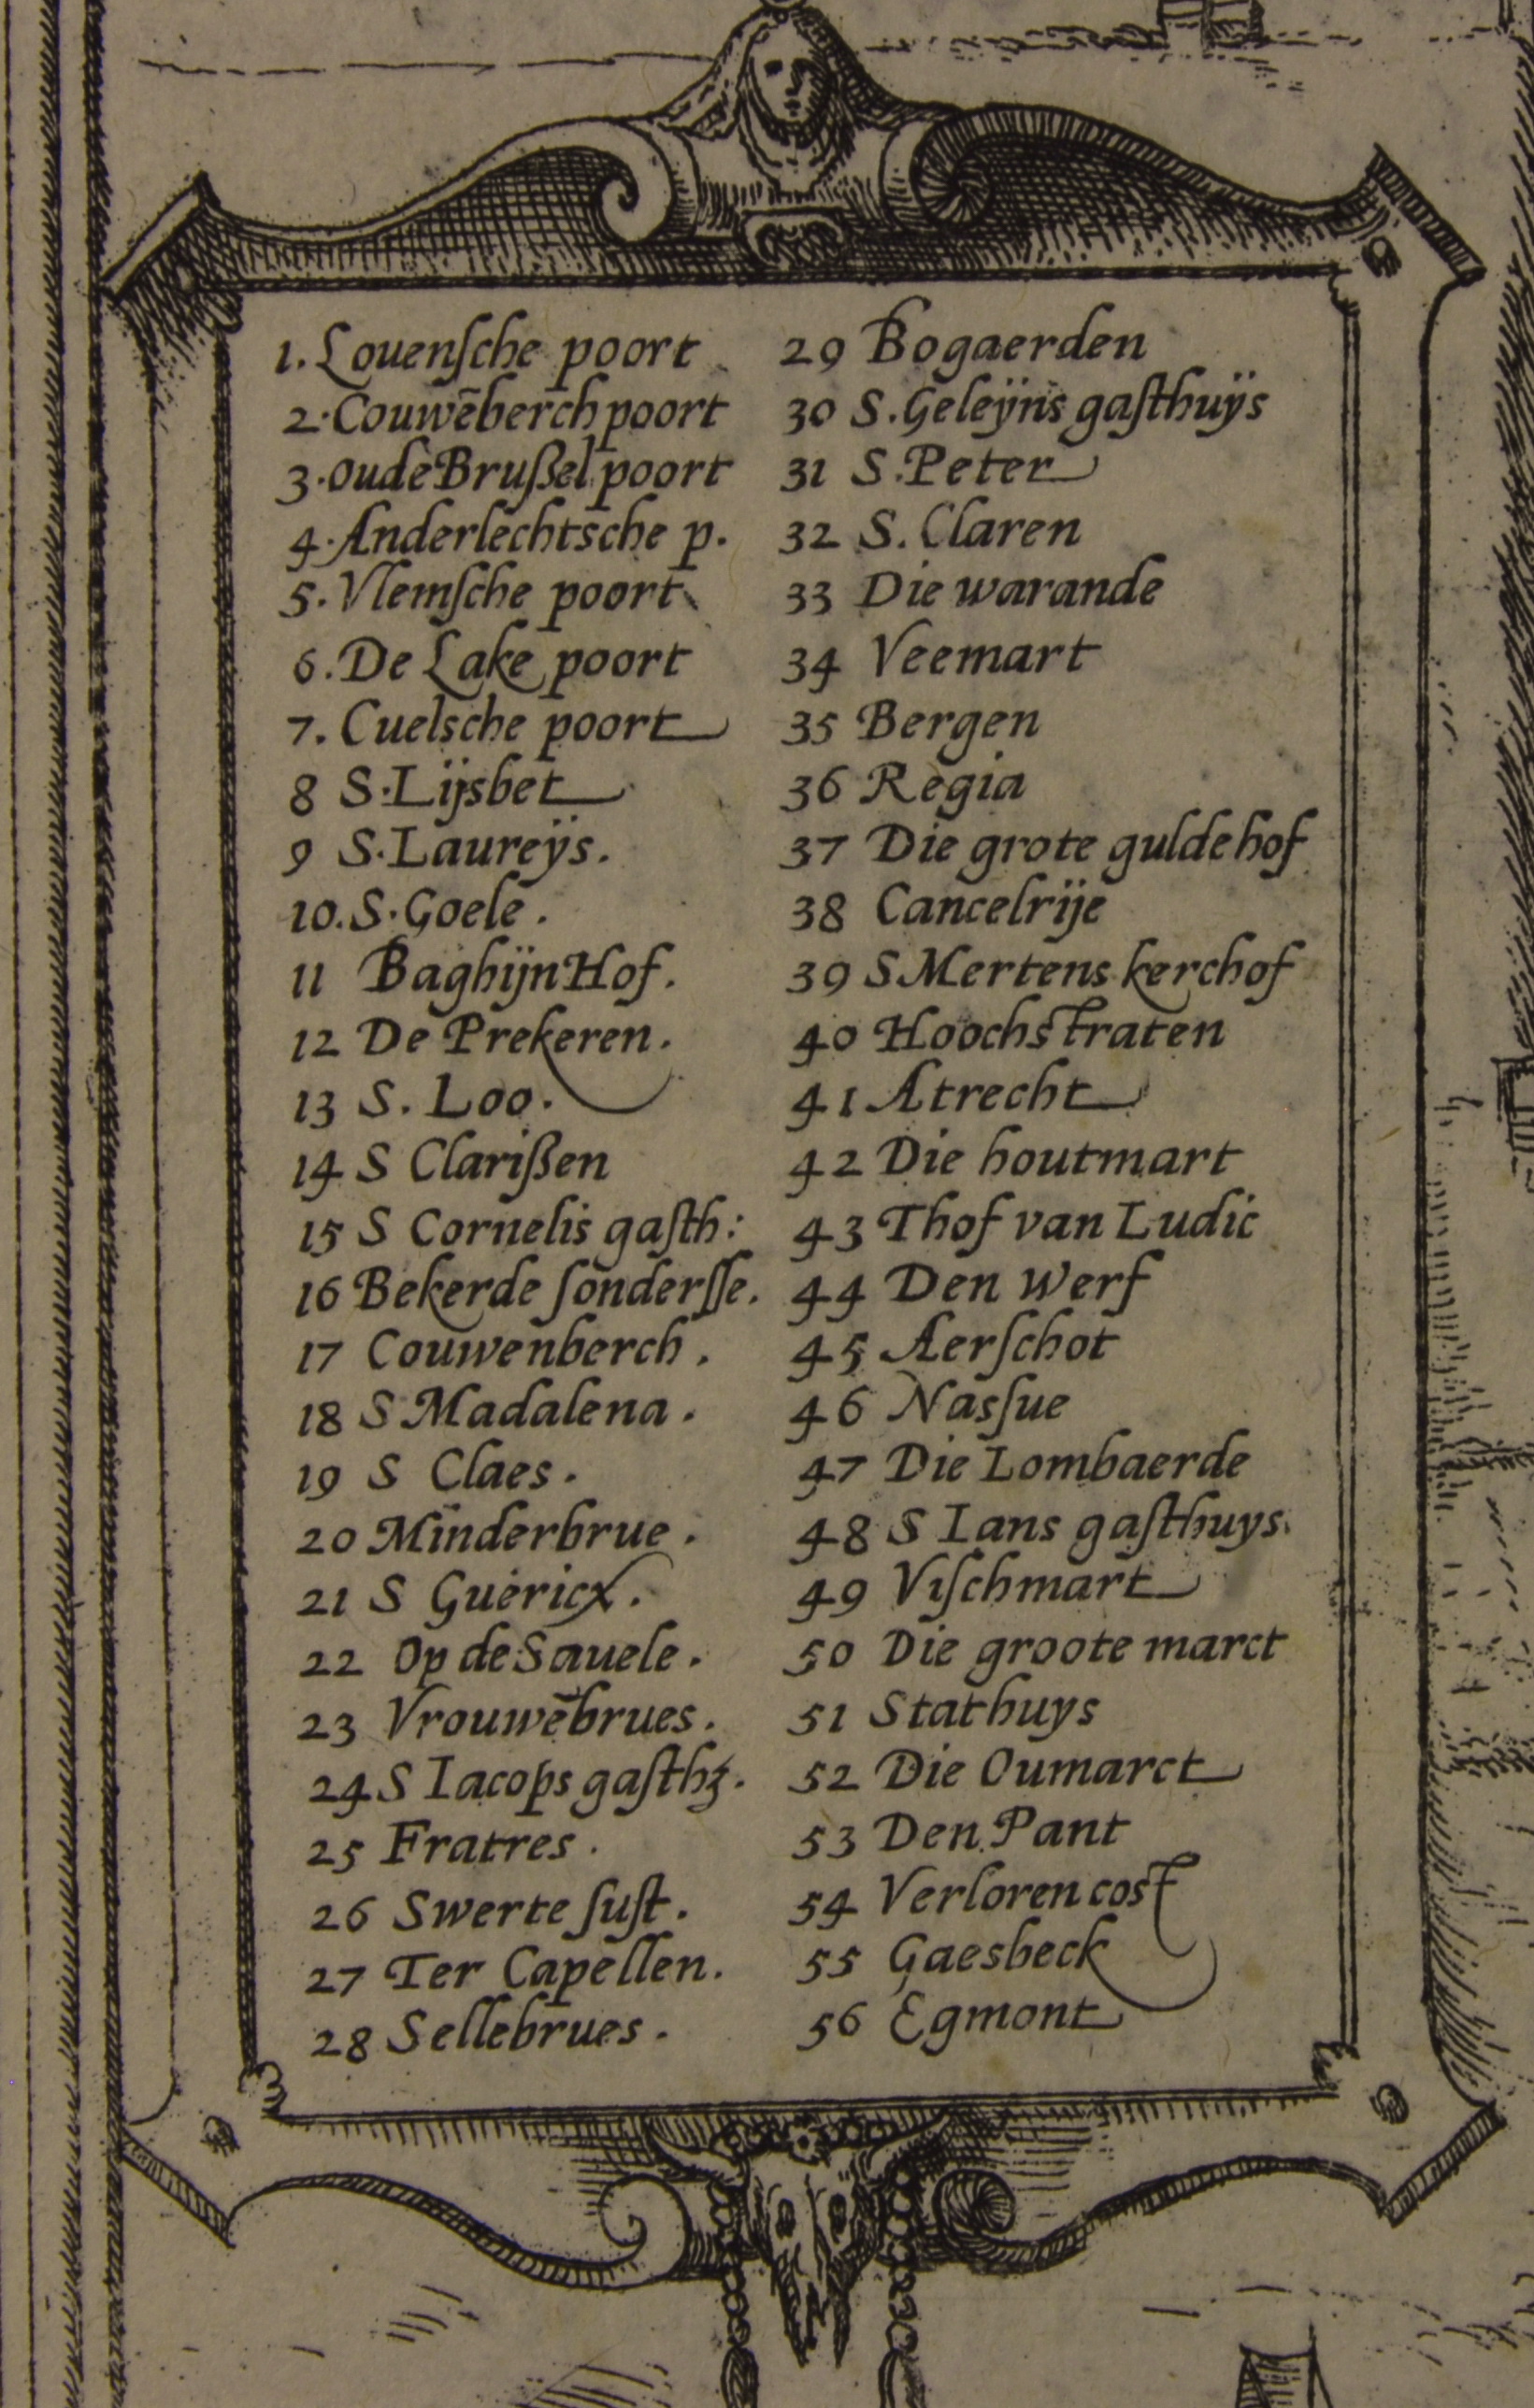 1. Louenſche poort
2. Couwēberch poort
3. Oude Brußel poort
4. Anderlechtsche p.
5. Vlemſche poort
6. De Lake poort
7. Cuelsche poort
8 S. Lijsbet
9 S. Laureÿs.
10. S. Goele.
11 Baghijn Hof.
12 De Prekeren.
13 S. Loo.
14 S Clarißen
15 S Cornelis gaſth:
16 Bekerde ſonderſſe.
17 Couwenberch.
18 S Madalena.
19 S Claes.
20 Minderbrue.
21 S Guericx.
22 Op de Sauele.
23 Vrouwēbrues.
24 S Iacops gaſthʒ.
25 Fratres.
26 Swerte ſuſt.
27 Ter Capellen.
28 Sellebrues.
29 Bogaerden
30 S. Geleÿns gaſthuÿs
31 S. Peter
32 S. Claren
33 Die warande
34 Veemart
35 Bergen
36 Regia
37 Die grote gulde hof
38 Cancelrije
39 S Mertens kerchof
40 Hoochstraten
41 Atrecht
42 Die houtmart
43 Thof van Ludic
44 Den Werf
45 Aerſchot
46 Nasſue
47 Die Lombaerde
48 S Ians gaſthuys.
49 Viſchmart
50 Die groote marct
51 Stathuys
52 Die Oumarct
53 Den Pant
54 Verloren cost
55 Gaesbeck
56 Egmont